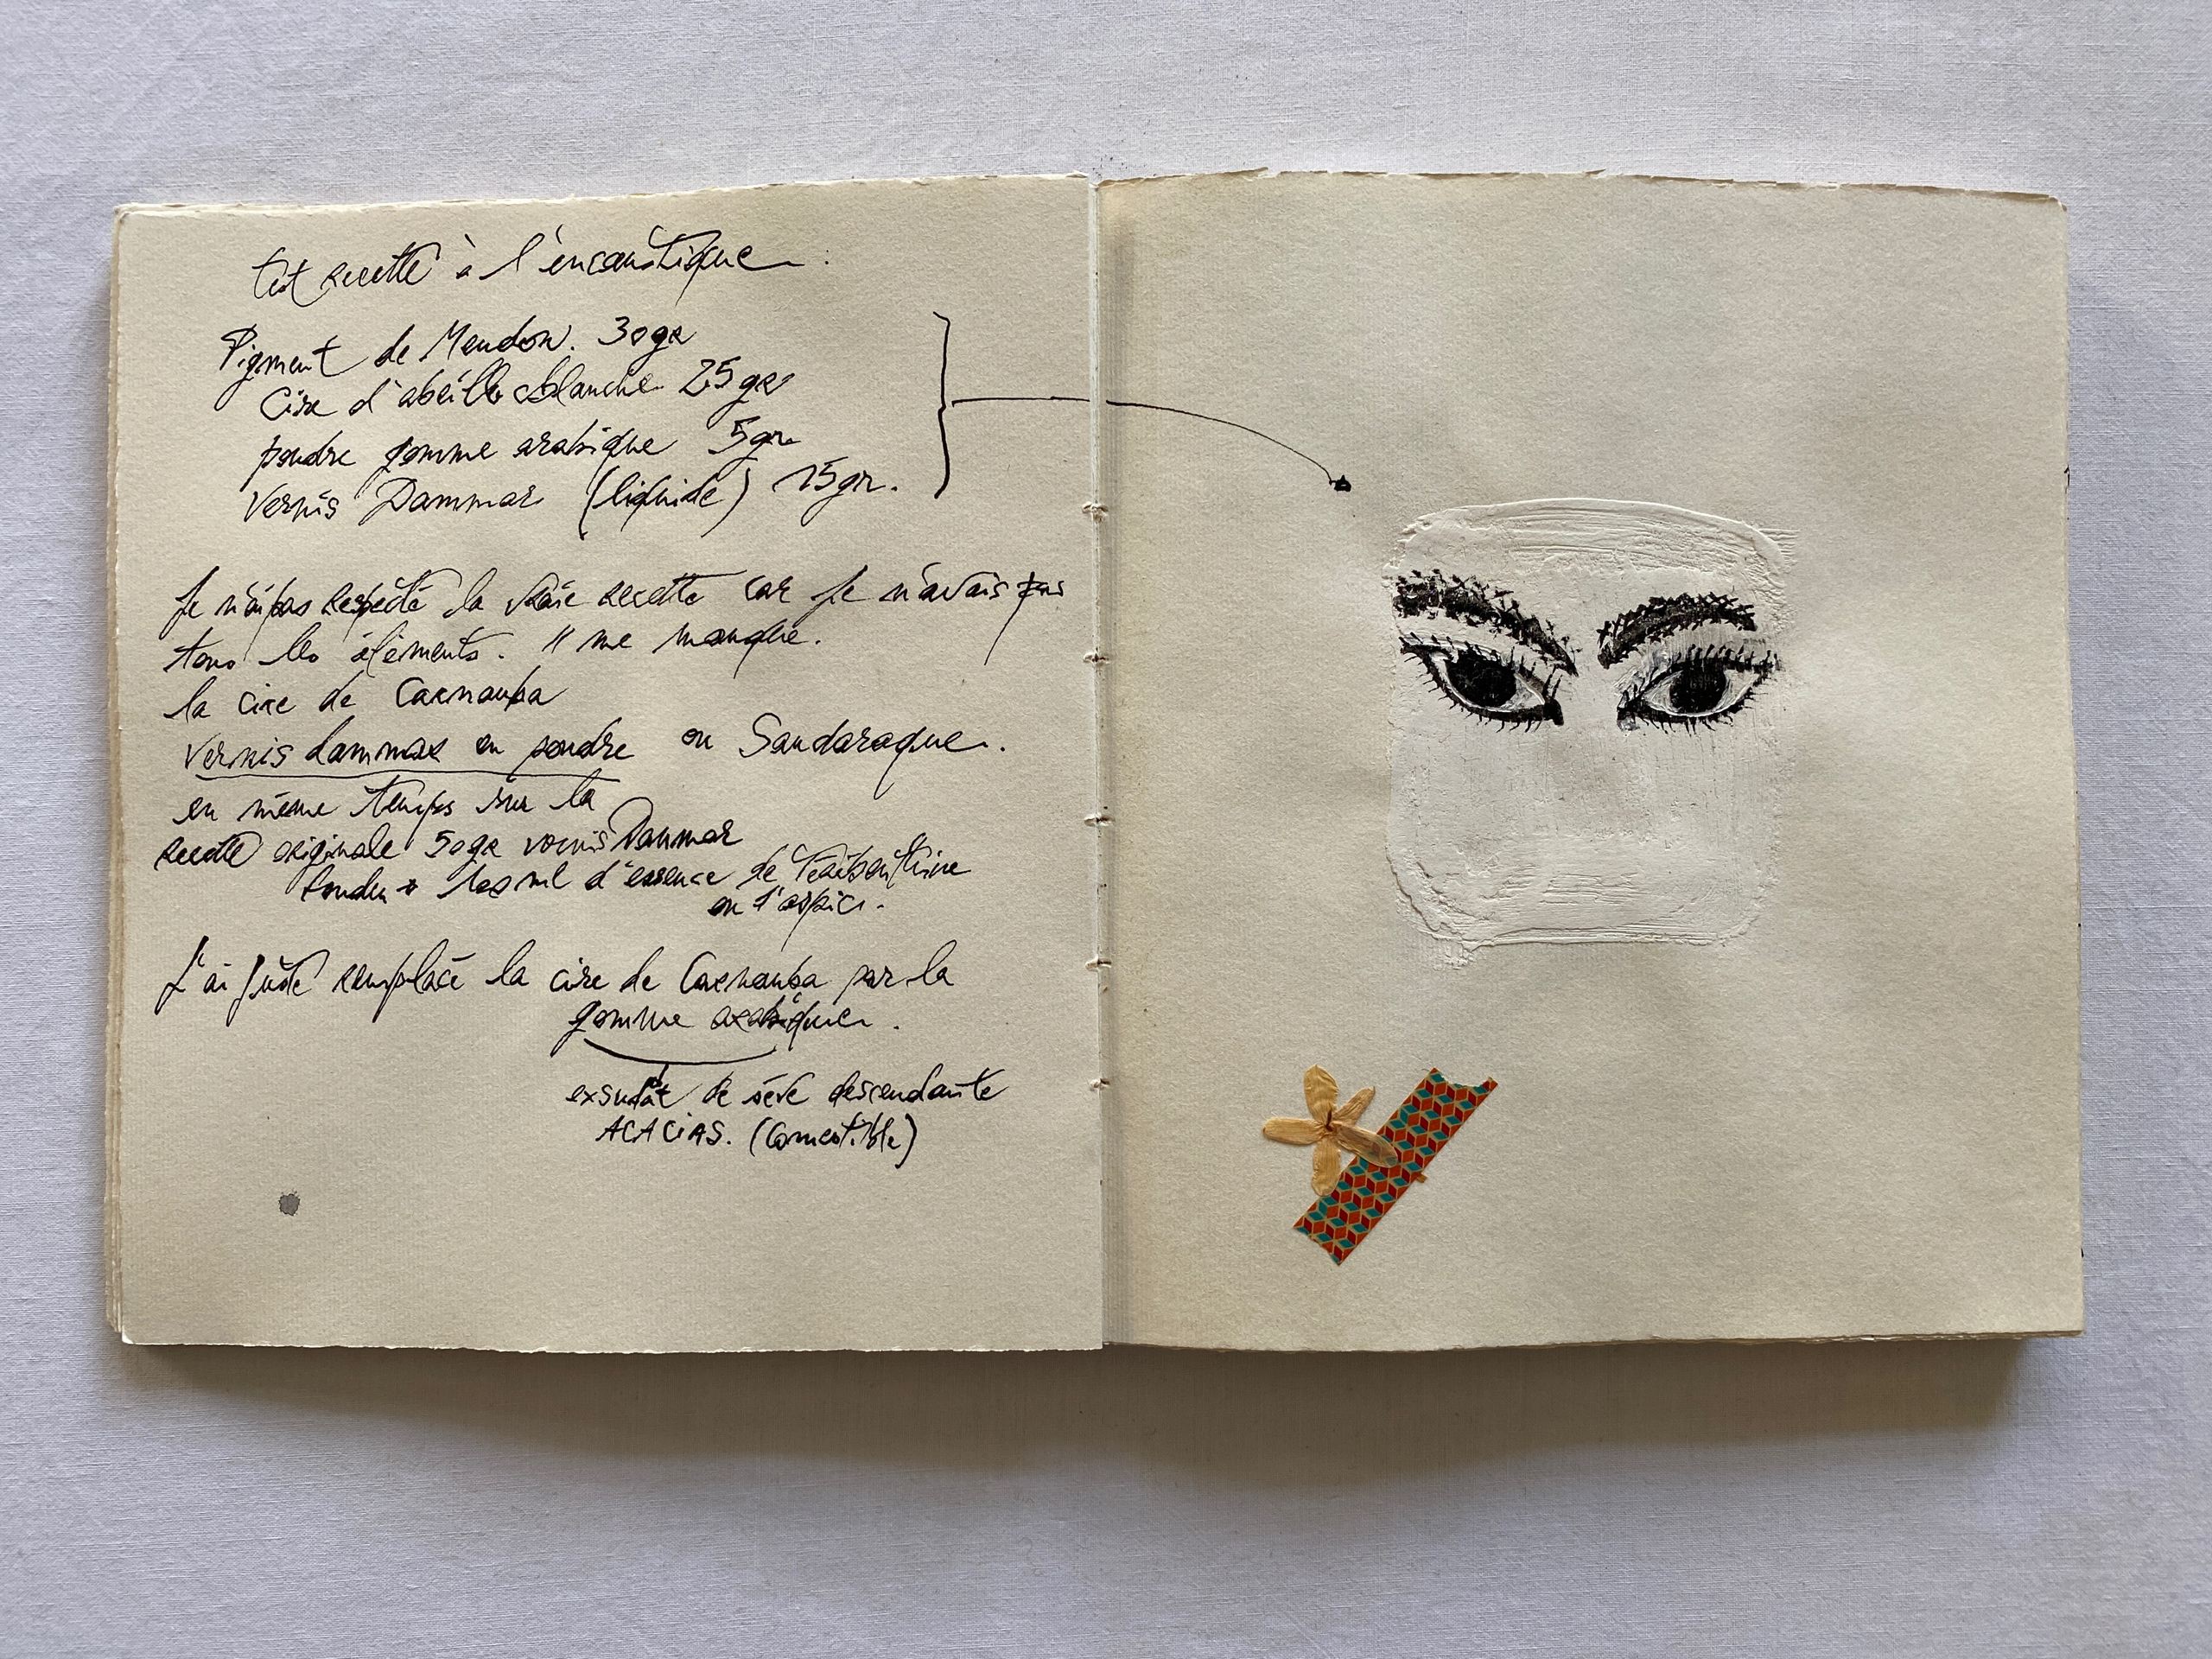 test recette à l'encaustique.
Pigment de Meudon. 30gr
Cire d'abeille blanche 25gr
poudre gomme arabique 5gr
Vernis Dammar (liquide) 15gr.
Je n'ai pas respecté la vraie recette car je n'avais pas
tous les éléments. Il me manque.
la cire de Carnauba
Vernis dammar en poudre ou Sandaraque.
en même temps sur la
recette originale 50gr vernis Dammar
fondu + 100ml d'essence de Térébenthine
ou d'aspic.
J'ai juste remplacé la cire de Carnauba par la
gomme arabique.
exsudat de sève descendante
ACACIAS. (Comestible)